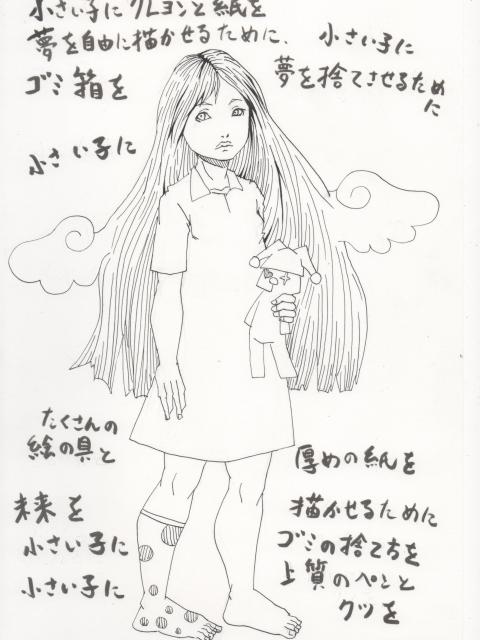 小さい子に クレヨンと紙を
夢を自由に描かせるために、
小さい子に
ゴミ箱を
夢を捨てさせるため
に
小さい子に
たくさんの
絵の具と
厚めの紙を
未来を
描かせるために
小さい子に
ゴミの捨て方を
小さい子に
上質のペンと
クツを